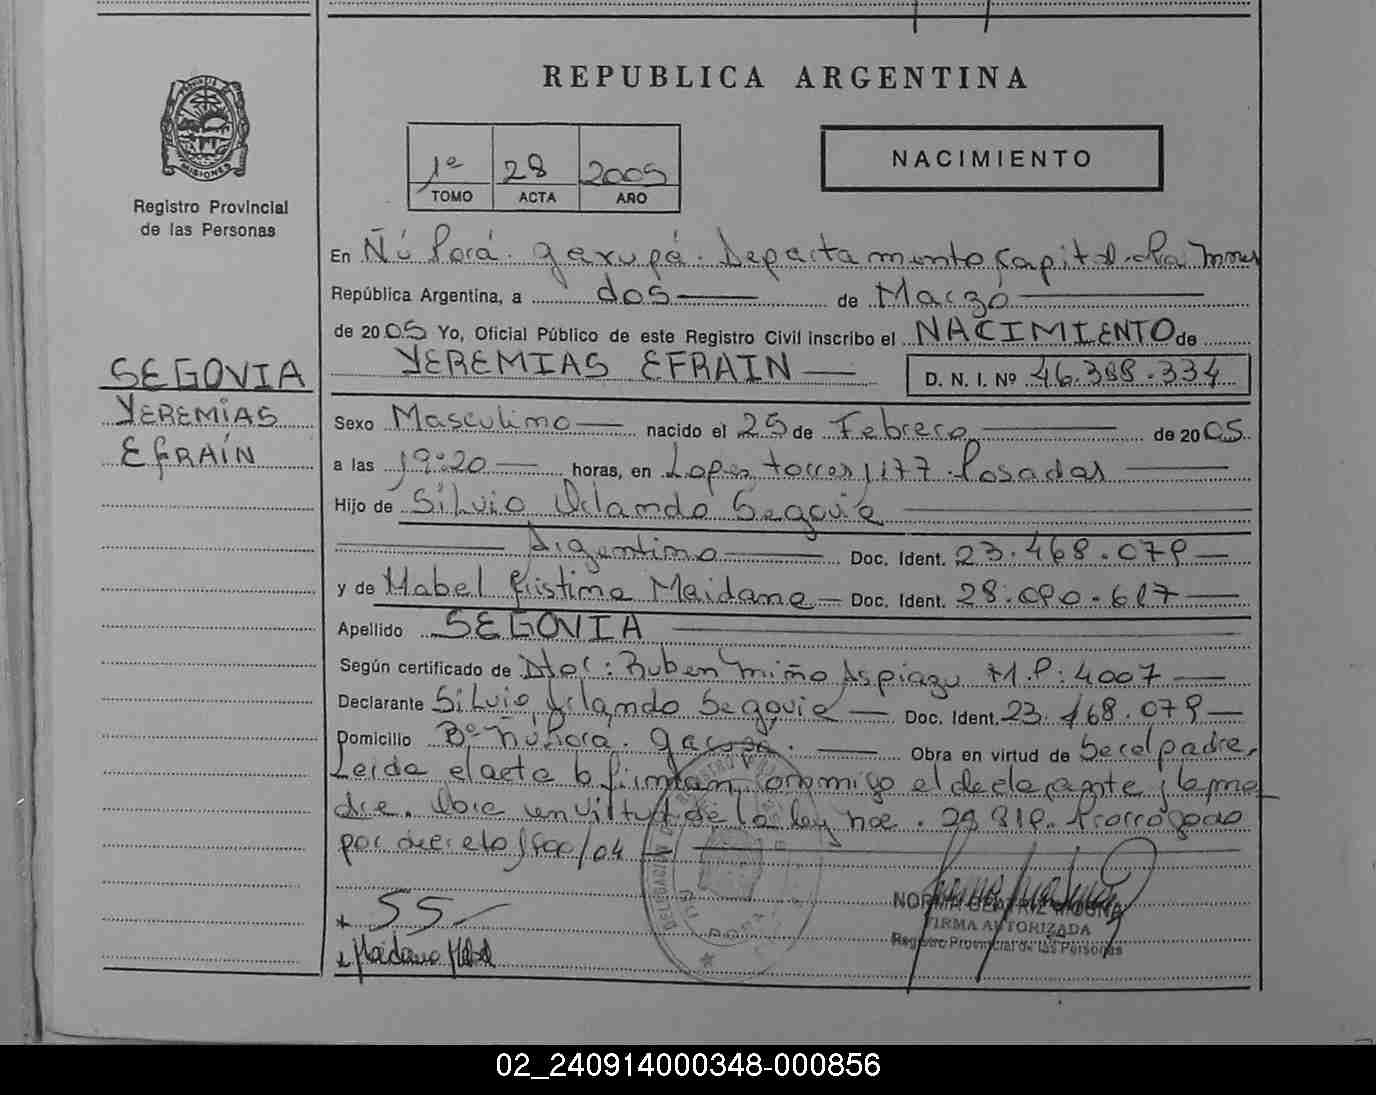 REPUBLICA ARGENTINA
PROVINCIA DE MISIONES
Registro Provincial
de las Personas
1º 28 2005
TOMO ACTA AÑO
NACIMIENTO
En Ñú Porá. Garupá. Departamento Capital.
República Argentina, a dos de Marzo
de 2005 Yo, Oficial Público de este Registro Civil inscribo el NACIMIENTO de
YEREMIAS EFRAIN D. N. I. Nº 46.388.334
SEGOVIA
YEREMiAS
EfRAÍN
Sexo Masculino nacido el 25 de Febrero de 2005
a las 19:20 horas, en Lopez torres 1177. Posadas
Hijo de Silvio Orlando Segovia
Argentino Doc. Ident. 23.468.079
y de Mabel Cristina Maidana Doc. Ident. 28.090.617
Apellido SEGOVIA
Según certificado de Dtor: Ruben Miño Aspiazu M.P: 4007
Declarante Silvio Orlando Segovia Doc. Ident. 23.468.079
Domicilio Bº Ñú Porá. Garupá. Obra en virtud de Ser el padre.
Leida el acta la firman conmigo el declarante y la ma
dre. Obra en virtud de la ley nae. 25.819. Prorrogado
por decreto 1900/04
x SS
x Maidana Mabel
ÑU PORÁ
NORMA BEATRIZ
FIRMA AUTORIZADA
Registro Provincial de las Personas
02_240914000348-000856